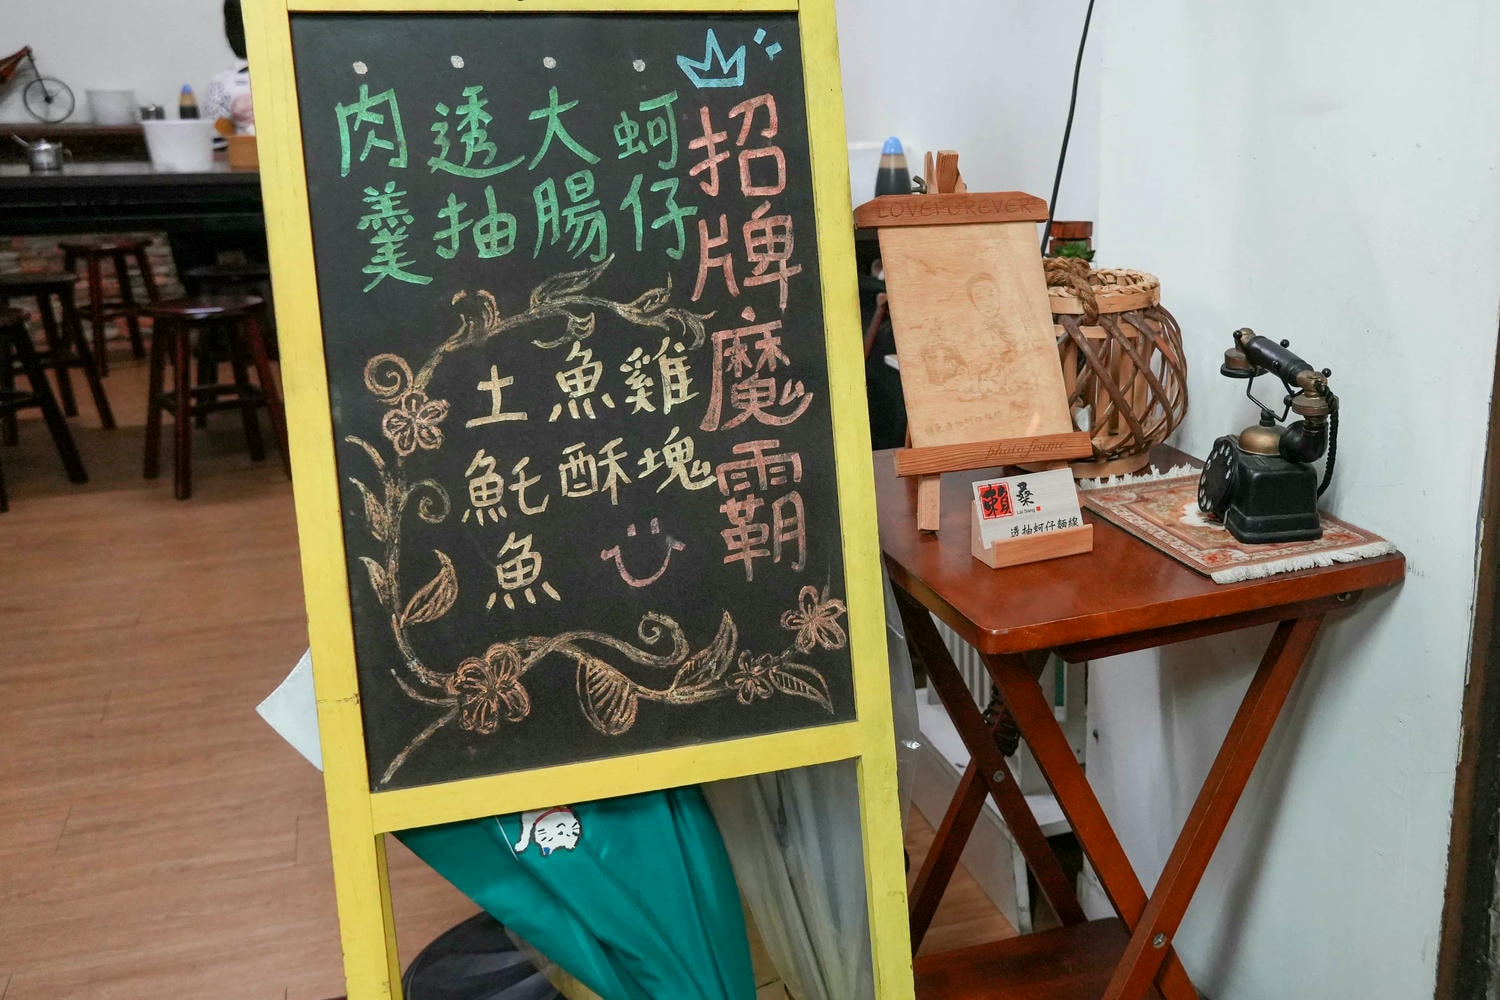 招牌魔霸
蚵仔
大腸
透抽
肉羹
雞塊
魚酥
土魠魚
LOVEFOREVER
photo frame
賴桑
Lai Sang
透抽蚵仔麵線